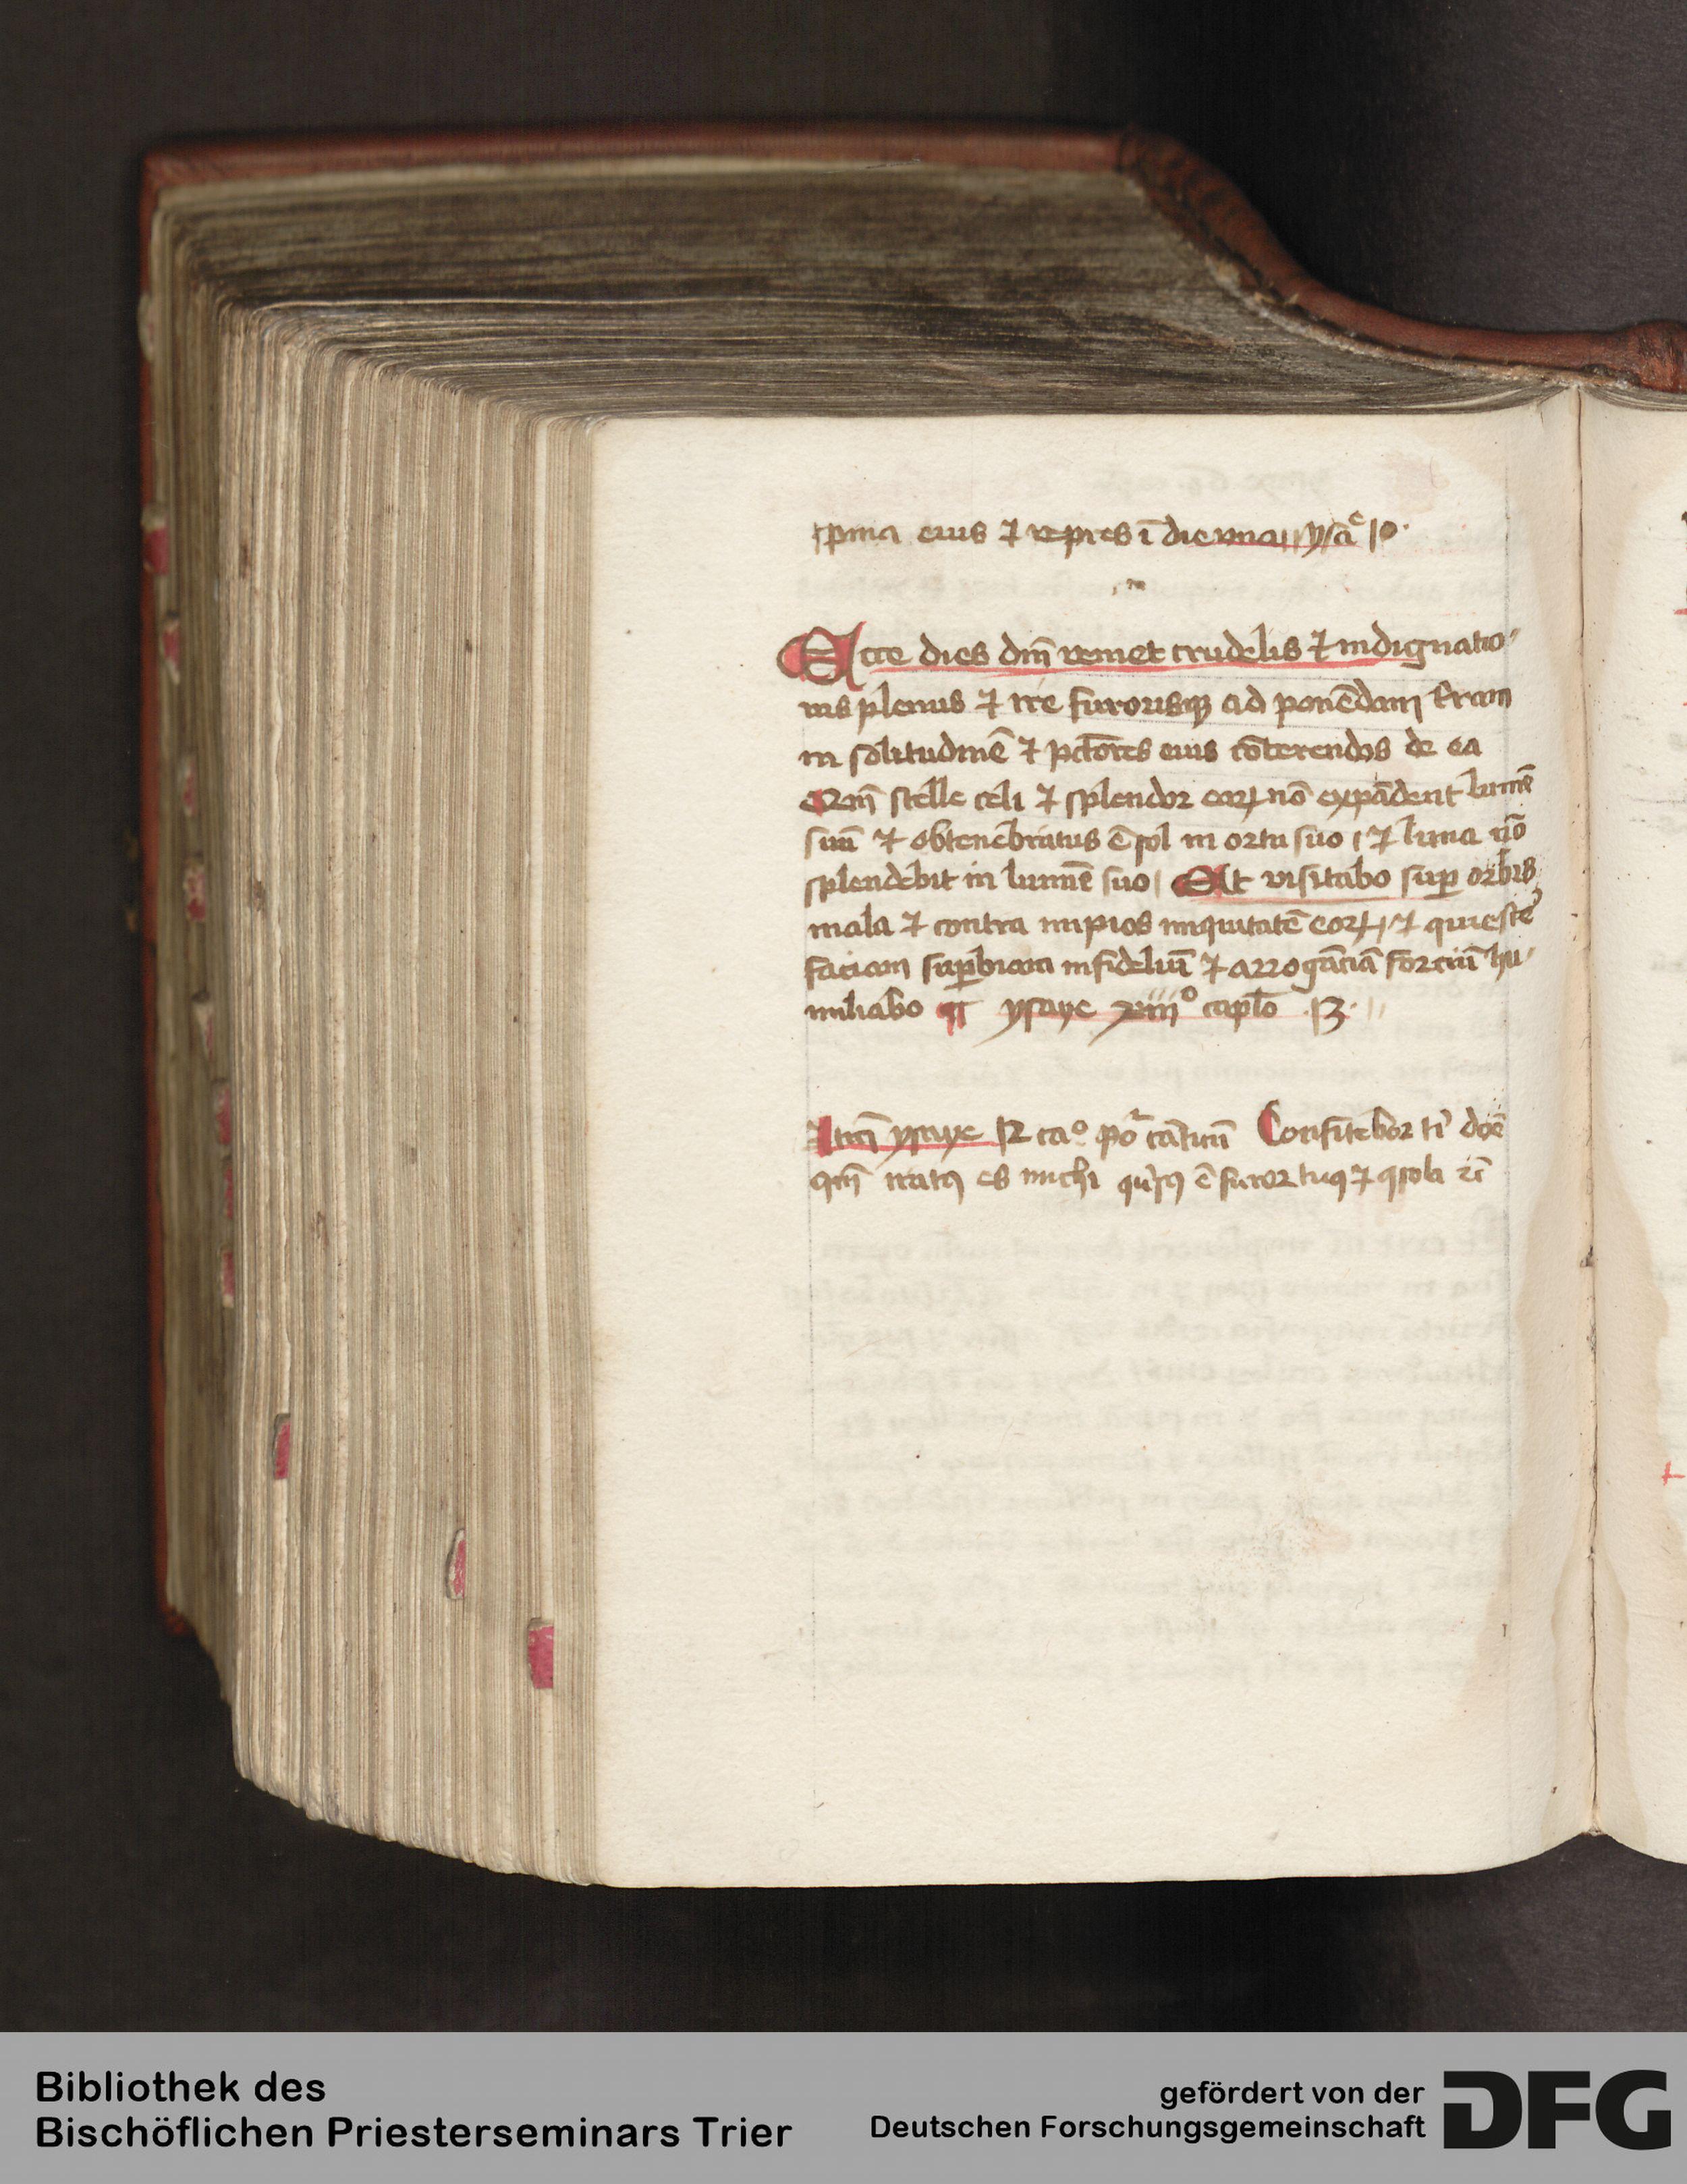 spina eius ⁊ vepres ī die vna ysa 10
Ecce dies dm̄ veniet crudelis ⁊ indignatio
nis plenus ⁊ ire furorisqꝫ ad ponēdam terram
in solitudinē ⁊ pctōres eius cōterendos de ea
Qm̄ stelle celi ⁊ splendor eoꝝ nō expādent lumē
suū ⁊ obtenebratus ē sol in ortu suo ⁊ luna nō
splendebit in lumīe suo Et visitabo suꝑ orbis
mala ⁊ contra impios iniquitatē eoꝝ ⁊ quiescē
faciam suꝑbiam infideliū ⁊ arrogāciā forciū hu
miliabo ¶ ysaye capl̄o 13
Itm̄ ysaye 12 cao canticū Confitebor ti dn̄e
qm̄ iratꝰ es michi ē furor tuꝰ ⁊
Bibliothek des
Bischöflichen Priesterseminars Trier
gefördert von der
Deutschen Forschungsgemeinschaft
DFG